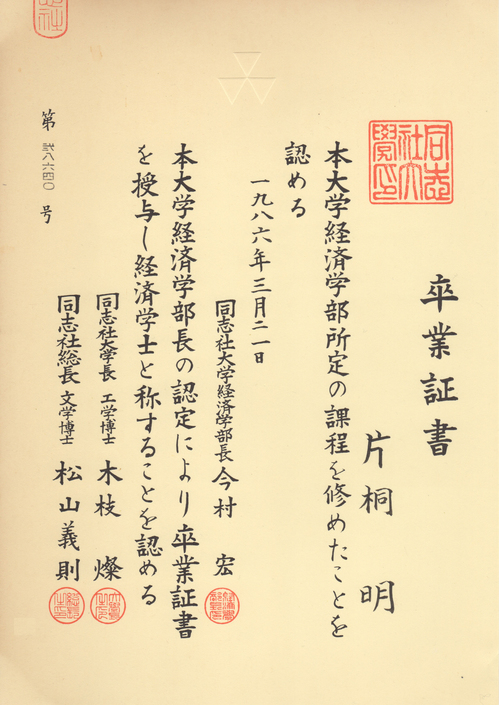 卒業証書
片桐 明
本大学経済学部所定の課程を修めたことを
認める
一九八六年三月二一日
同志社大学経済学部長 今村 宏
本大学経済学部長の認定により卒業証書
を授与し経済学士と称することを認める
同志社大学長 工学博士 木枝 燦
同志社総長 文学博士 松山義則
第 弐八六四〇 号
同志社大學印